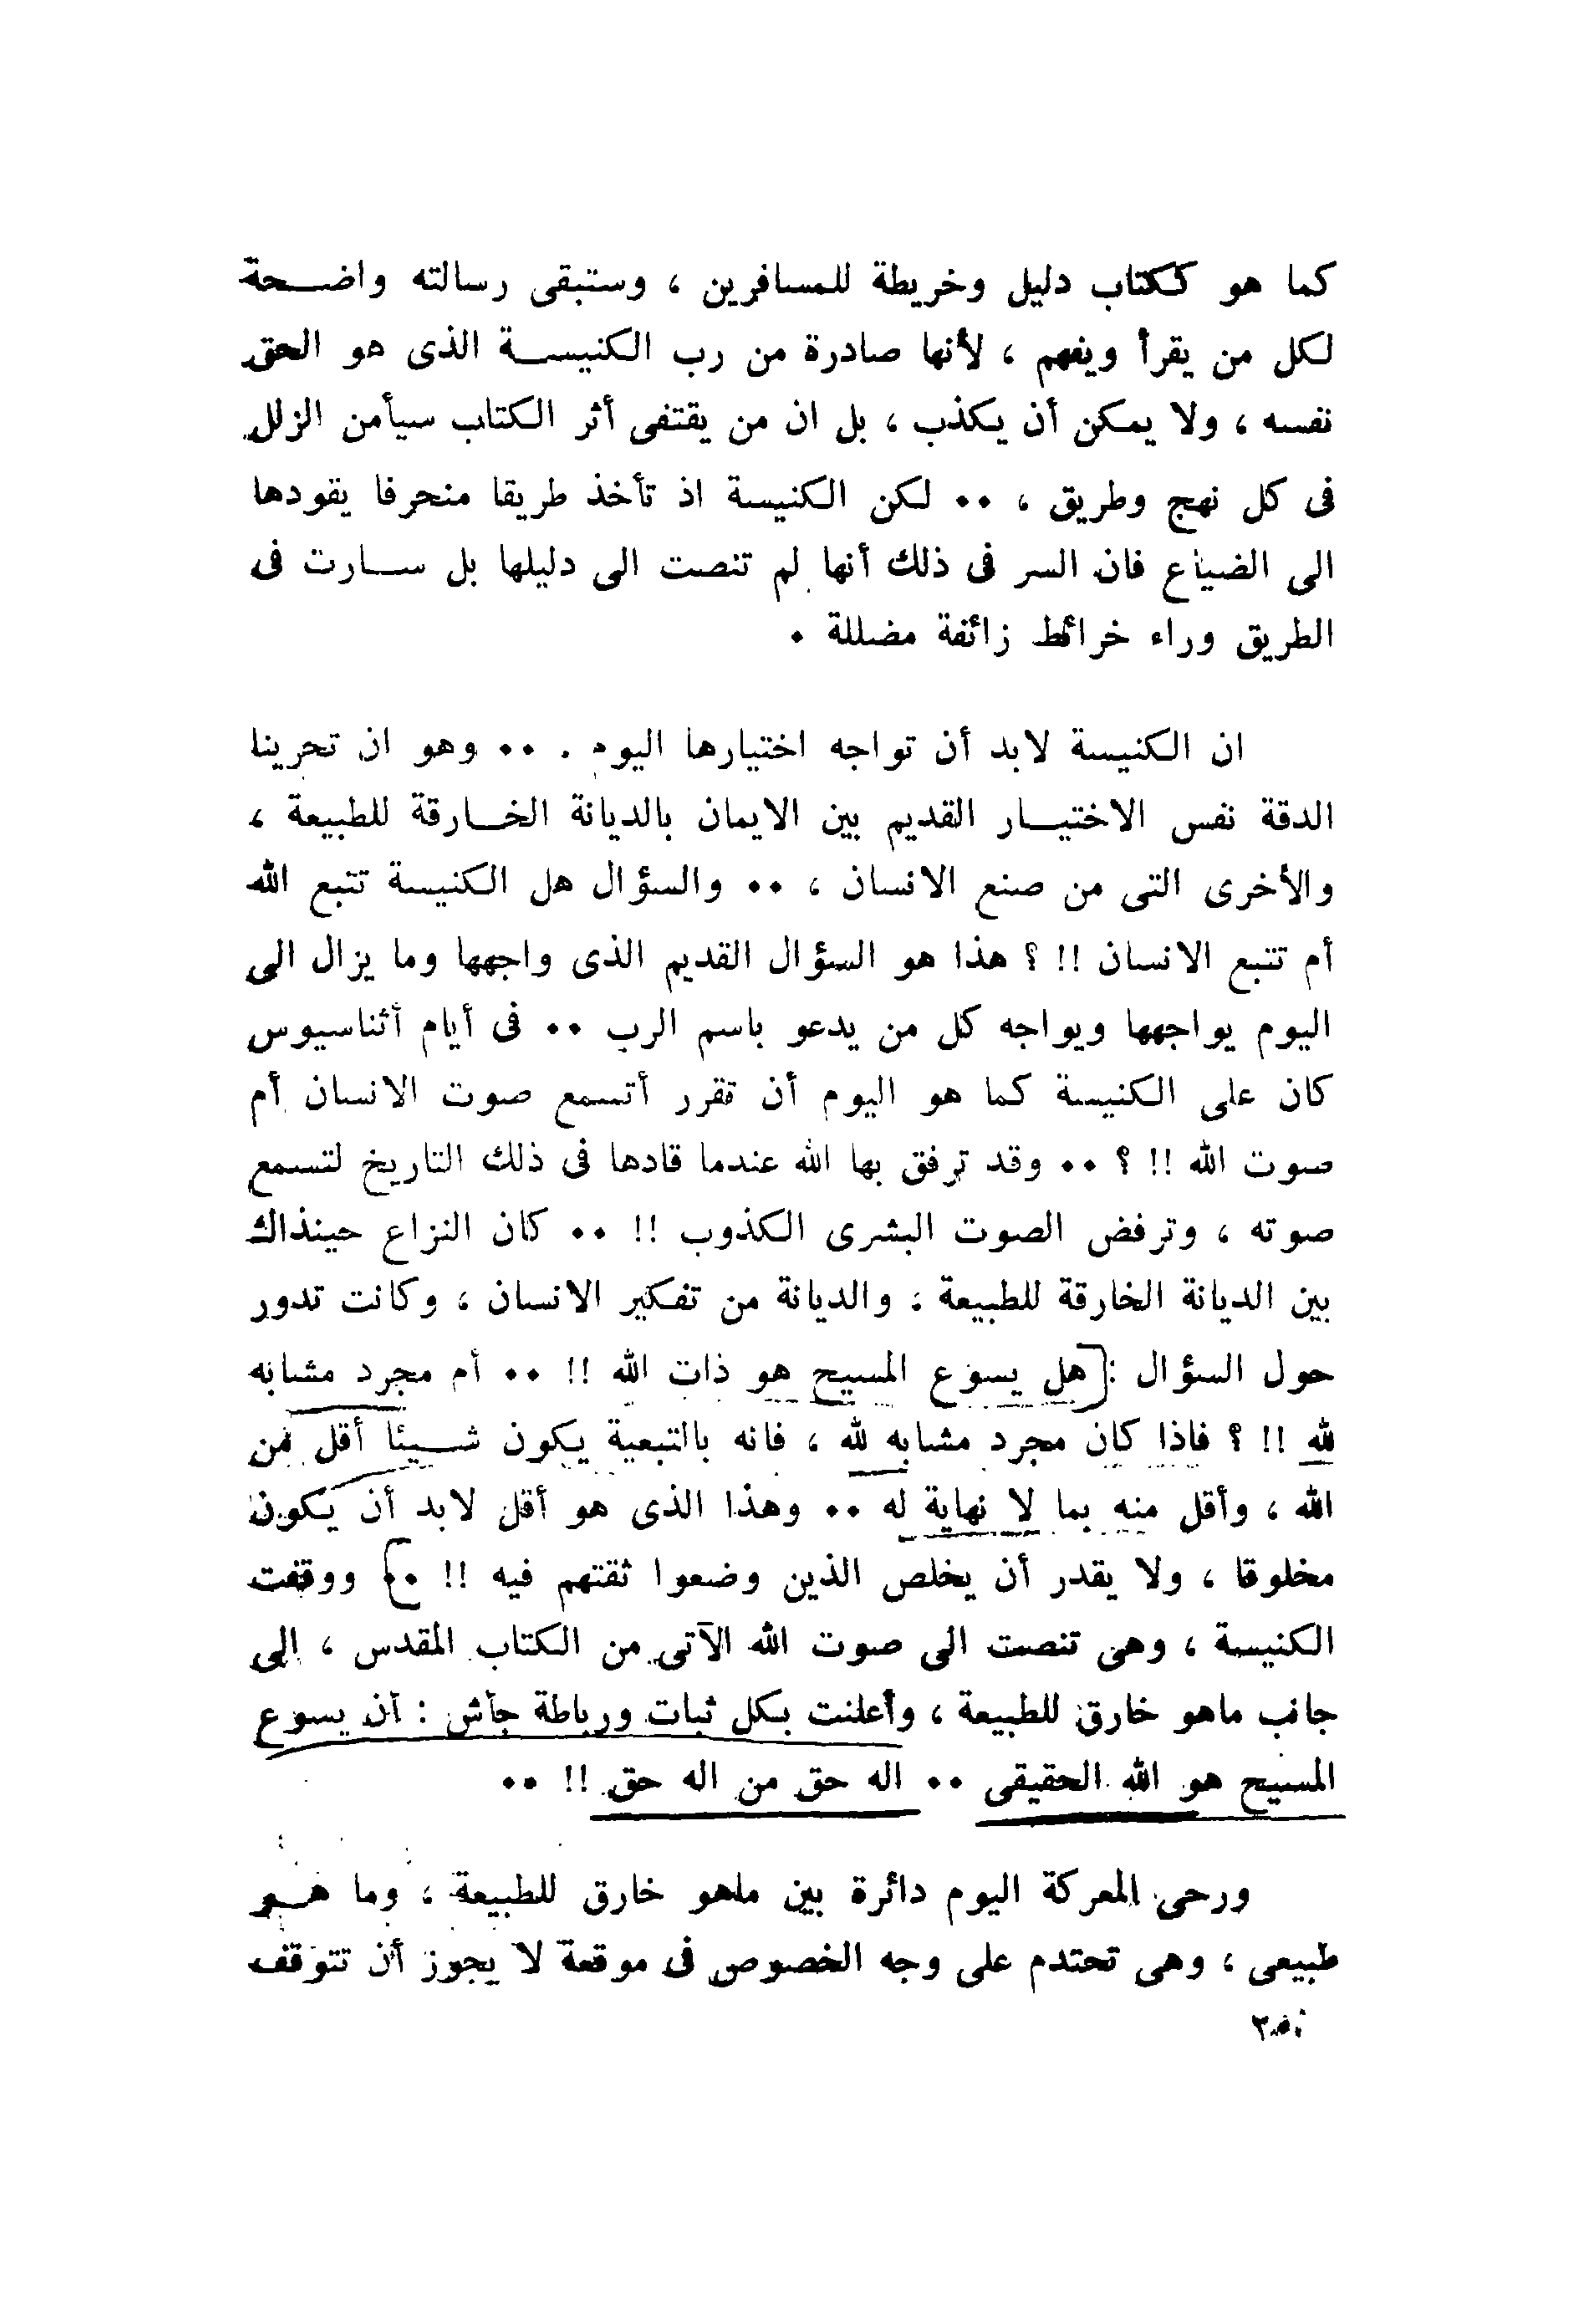 كما هو ككتاب دليل وخريطة للمسافرين ، وستبقى رسالته واضحة
لكل من يقرأ ويفهم ، لأنها صادرة من رب الكنيسة الذى هو الحق
نفسه ، ولا يمكن أن يكذب ، بل ان من يقتفى أثر الكتاب سيأمن الزلل
فى كل نهج وطريق ، ٠٠ لكن الكنيسة اذ تأخذ طريقا منحرفا يقودها
الى الضياع فان السر فى ذلك أنها لم تنصت الى دليلها بل سارت فى
الطريق وراء خرائط زائفة مضللة ٠
ان الكنيسة لابد أن تواجه اختيارها اليوم . ٠٠ وهو ان تحرينا
الدقة نفس الاختيار القديم بين الايمان بالديانة الخارقة للطبيعة ،
والأخرى التى من صنع الانسان ، ٠٠ والسؤال هل الكنيسة تتبع الله
أم تتبع الانسان !! ؟ هذا هو السؤال القديم الذى واجهها وما يزال الى
اليوم يواجهها ويواجه كل من يدعو باسم الرب ٠٠ فى أيام أثناسيوس
كان على الكنيسة كما هو اليوم أن تقرر أتسمع صوت الانسان أم
صوت الله !! ؟ ٠٠ وقد ترفق بها الله عندما قادها فى ذلك التاريخ لتسمع
صوته ، وترفض الصوت البشرى الكذوب !! ٠٠ كان النزاع حينذاك
بين الديانة الخارقة للطبيعة ، والديانة من تفكير الانسان ، وكانت تدور
حول السؤال : [هل يسوع المسيح هو ذات الله !! ٠٠ أم مجرد مشابه
لله !! ؟ فاذا كان مجرد مشابه لله ، فانه بالتبعية يكون شيئا أقل من
الله ، وأقل منه بما لا نهاية له ٠٠ وهذا الذى هو أقل لابد أن يكون
مخلوقا ، ولا يقدر أن يخلص الذين وضعوا ثقتهم فيه !! ٠٠] ووقفت
الكنيسة ، وهى تنصت الى صوت الله الآتى من الكتاب المقدس ، الى
جانب ماهو خارق للطبيعة ، وأعلنت بكل ثبات ورباطة جأش : أن يسوع
المسيح هو الله الحقيقى ٠٠ اله حق من اله حق !! ٠٠
ورحى المعركة اليوم دائرة بين ماهو خارق للطبيعة ، وما هو
طبيعى ، وهى تحتدم على وجه الخصوص فى موقعة لا يجوز أن تتوقف